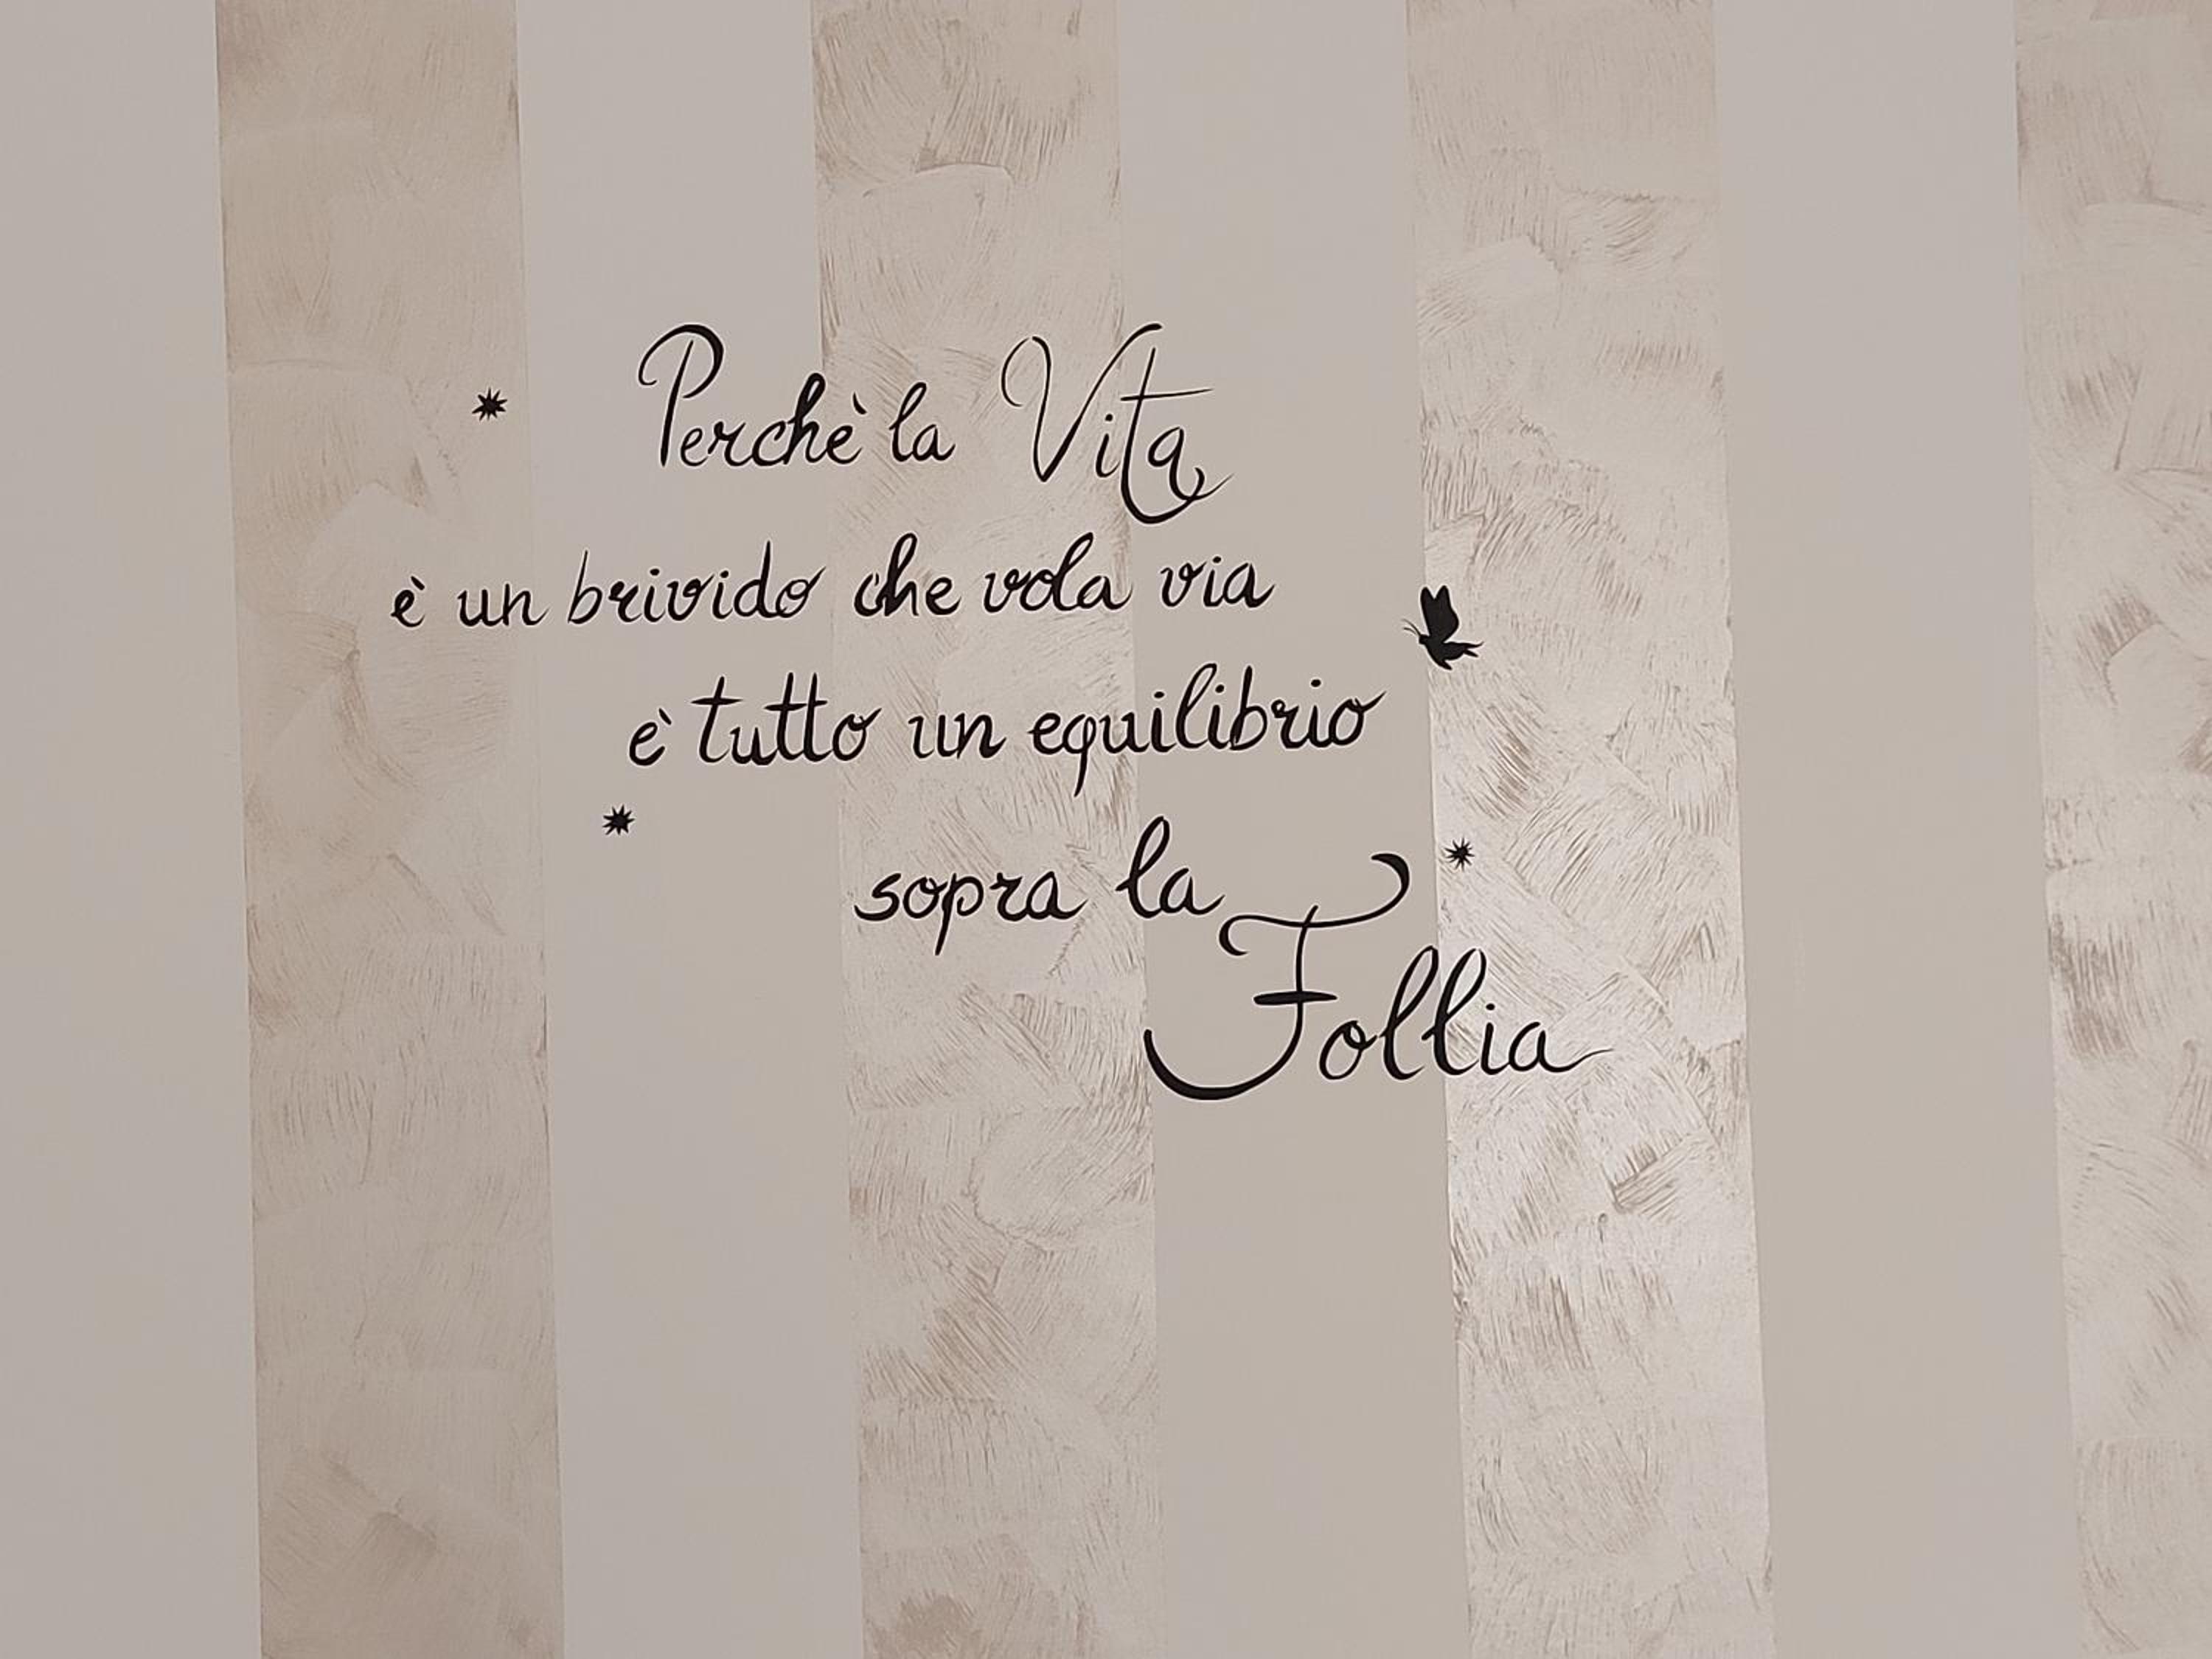 Perchè la Vita
è un brivido che vola via
è tutto un equilibrio
sopra la
Follia